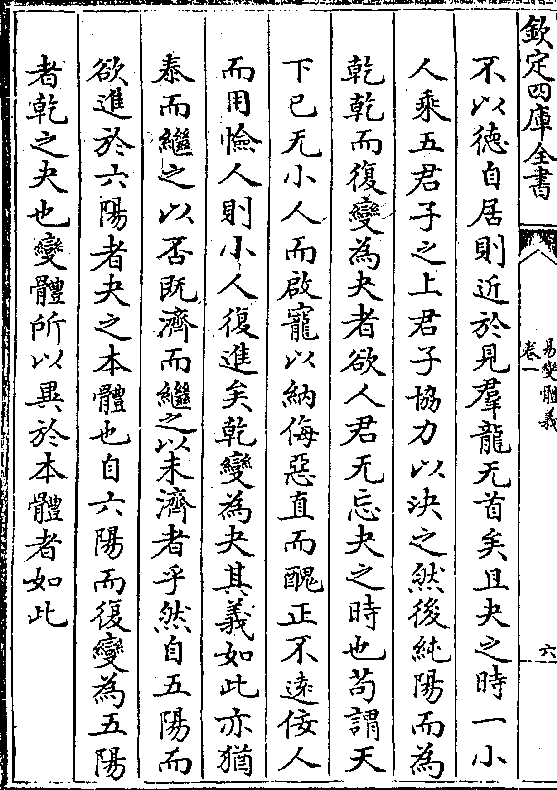 欽定四庫全書
易變體義
卷一
六
不以德自居則近於見羣龍无首矣且夬之時一小
人乘五君子之上君子協力以決之然後純陽而為
乾乾而復變為夬者欲人君无忘夬之時也苟謂天
下已无小人而啟寵以納侮惡直而醜正不逺佞人
而用憸人則小人復進矣乾變為夬其義如此亦猶
泰而繼之以否既濟而繼之以未濟者乎然自五陽而
欲進於六陽者夬之本體也自六陽而復變為五陽
者乾之夬也變體所以異於本體者如此